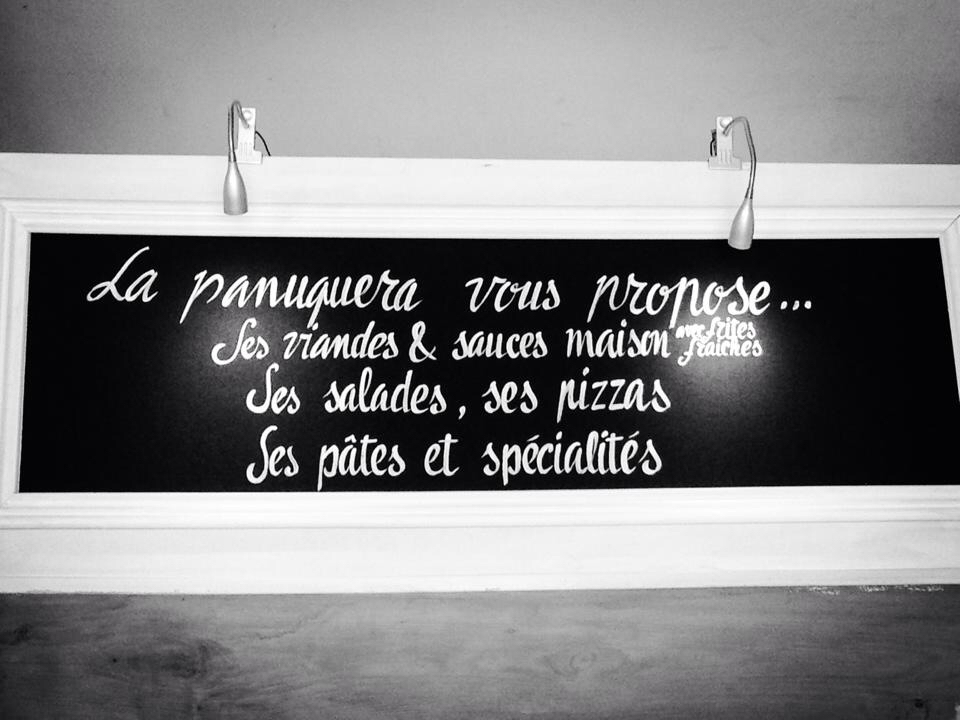 La panuquera vous propose...
Ses viandes & sauces maison avec frites fraîches
Ses salades, ses pizzas
Ses pâtes et spécialités